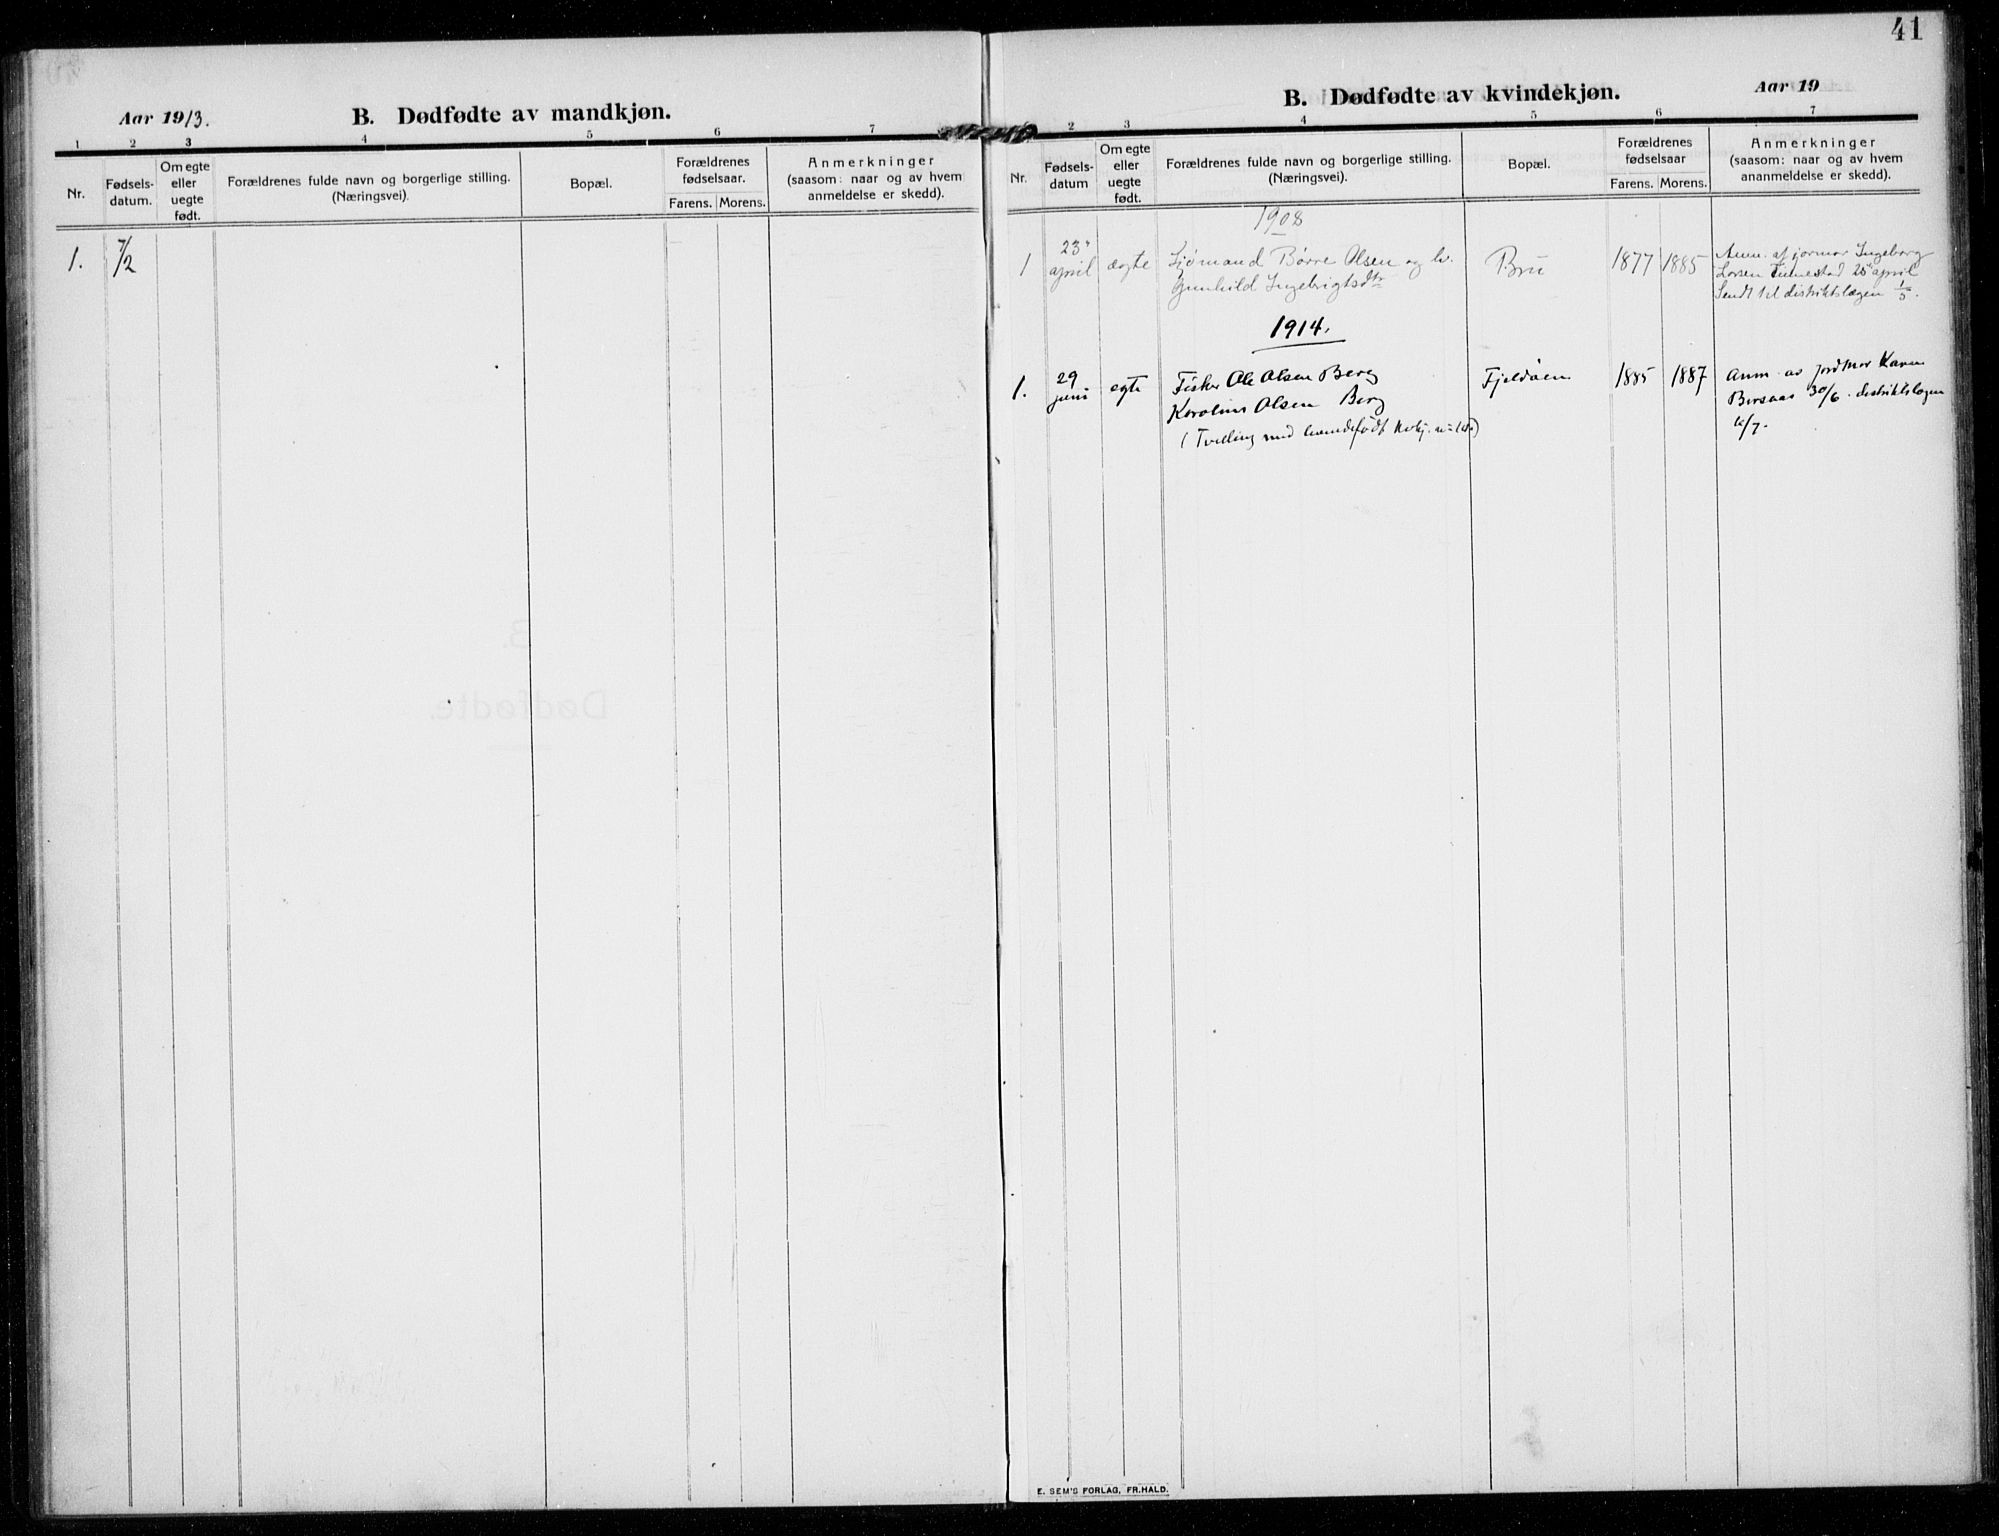 41
Aar 1913.
B. Dødfødte av mandkjøn.
1 2 3 4 5 6 7
Nr.
Fødsels-
datum.
Om egte
eller
uegte
født.
Forældrenes fulde navn og borgerlige stilling.
(Næringsvei).
Bopæl.
Forældrenes
fødselsaar.
Farens. Morens.
Anmerkninger
(saasom: naar og av hvem
anmeldelse er skedd).
1. 7/2
B. Dødfødte av kvindekjøn.
Aar 19
2 3 4 5 6 7
Nr.
Fødsels-
datum
Om egte
eller
uegte
født.
Forældrenes fulde navn og borgerlige stilling.
(Næringsvei).
Bopæl.
Forældrenes
fødselsaar
Farens. Morens.
Anmerkninger
(saasom: naar og av hvem
ananmeldelse er skedd).
1908
1
23
april
ægte
Sjømand Børre Olsen og h.
Gunhild Ingebrigtsdtr
Bru
1877 1885
Anm. af jormor Ingeborg
Larsen 25 april
Sendt til distriktslægen 1/5.
1914.
1.
29
juni
egte
Fisker Ole Olsen Berg
Karoline Olsen Berg
(Tvilling med levendefødt
Fjeldøen
1885 1887
Anm. av jordmor Karen
30/6. distriktslægen
/7.
E. SEM'S FORLAG, FR.HALD.